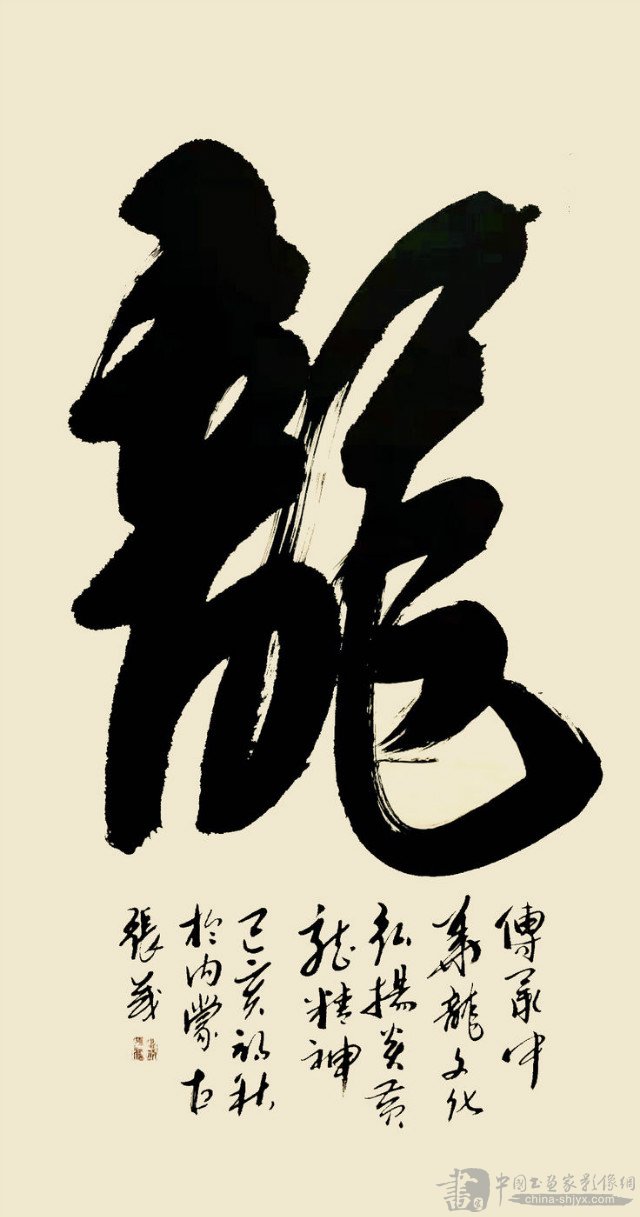 龍
傳承中
華龍文化
弘揚炎黄
龍精神
己亥初秋
於内蒙古
張
書 中国书画家影像網
china-shjyx.com